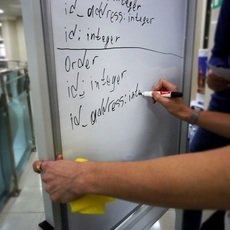 id_address:integer
id:integer
Order
id:integer
id_address:inte